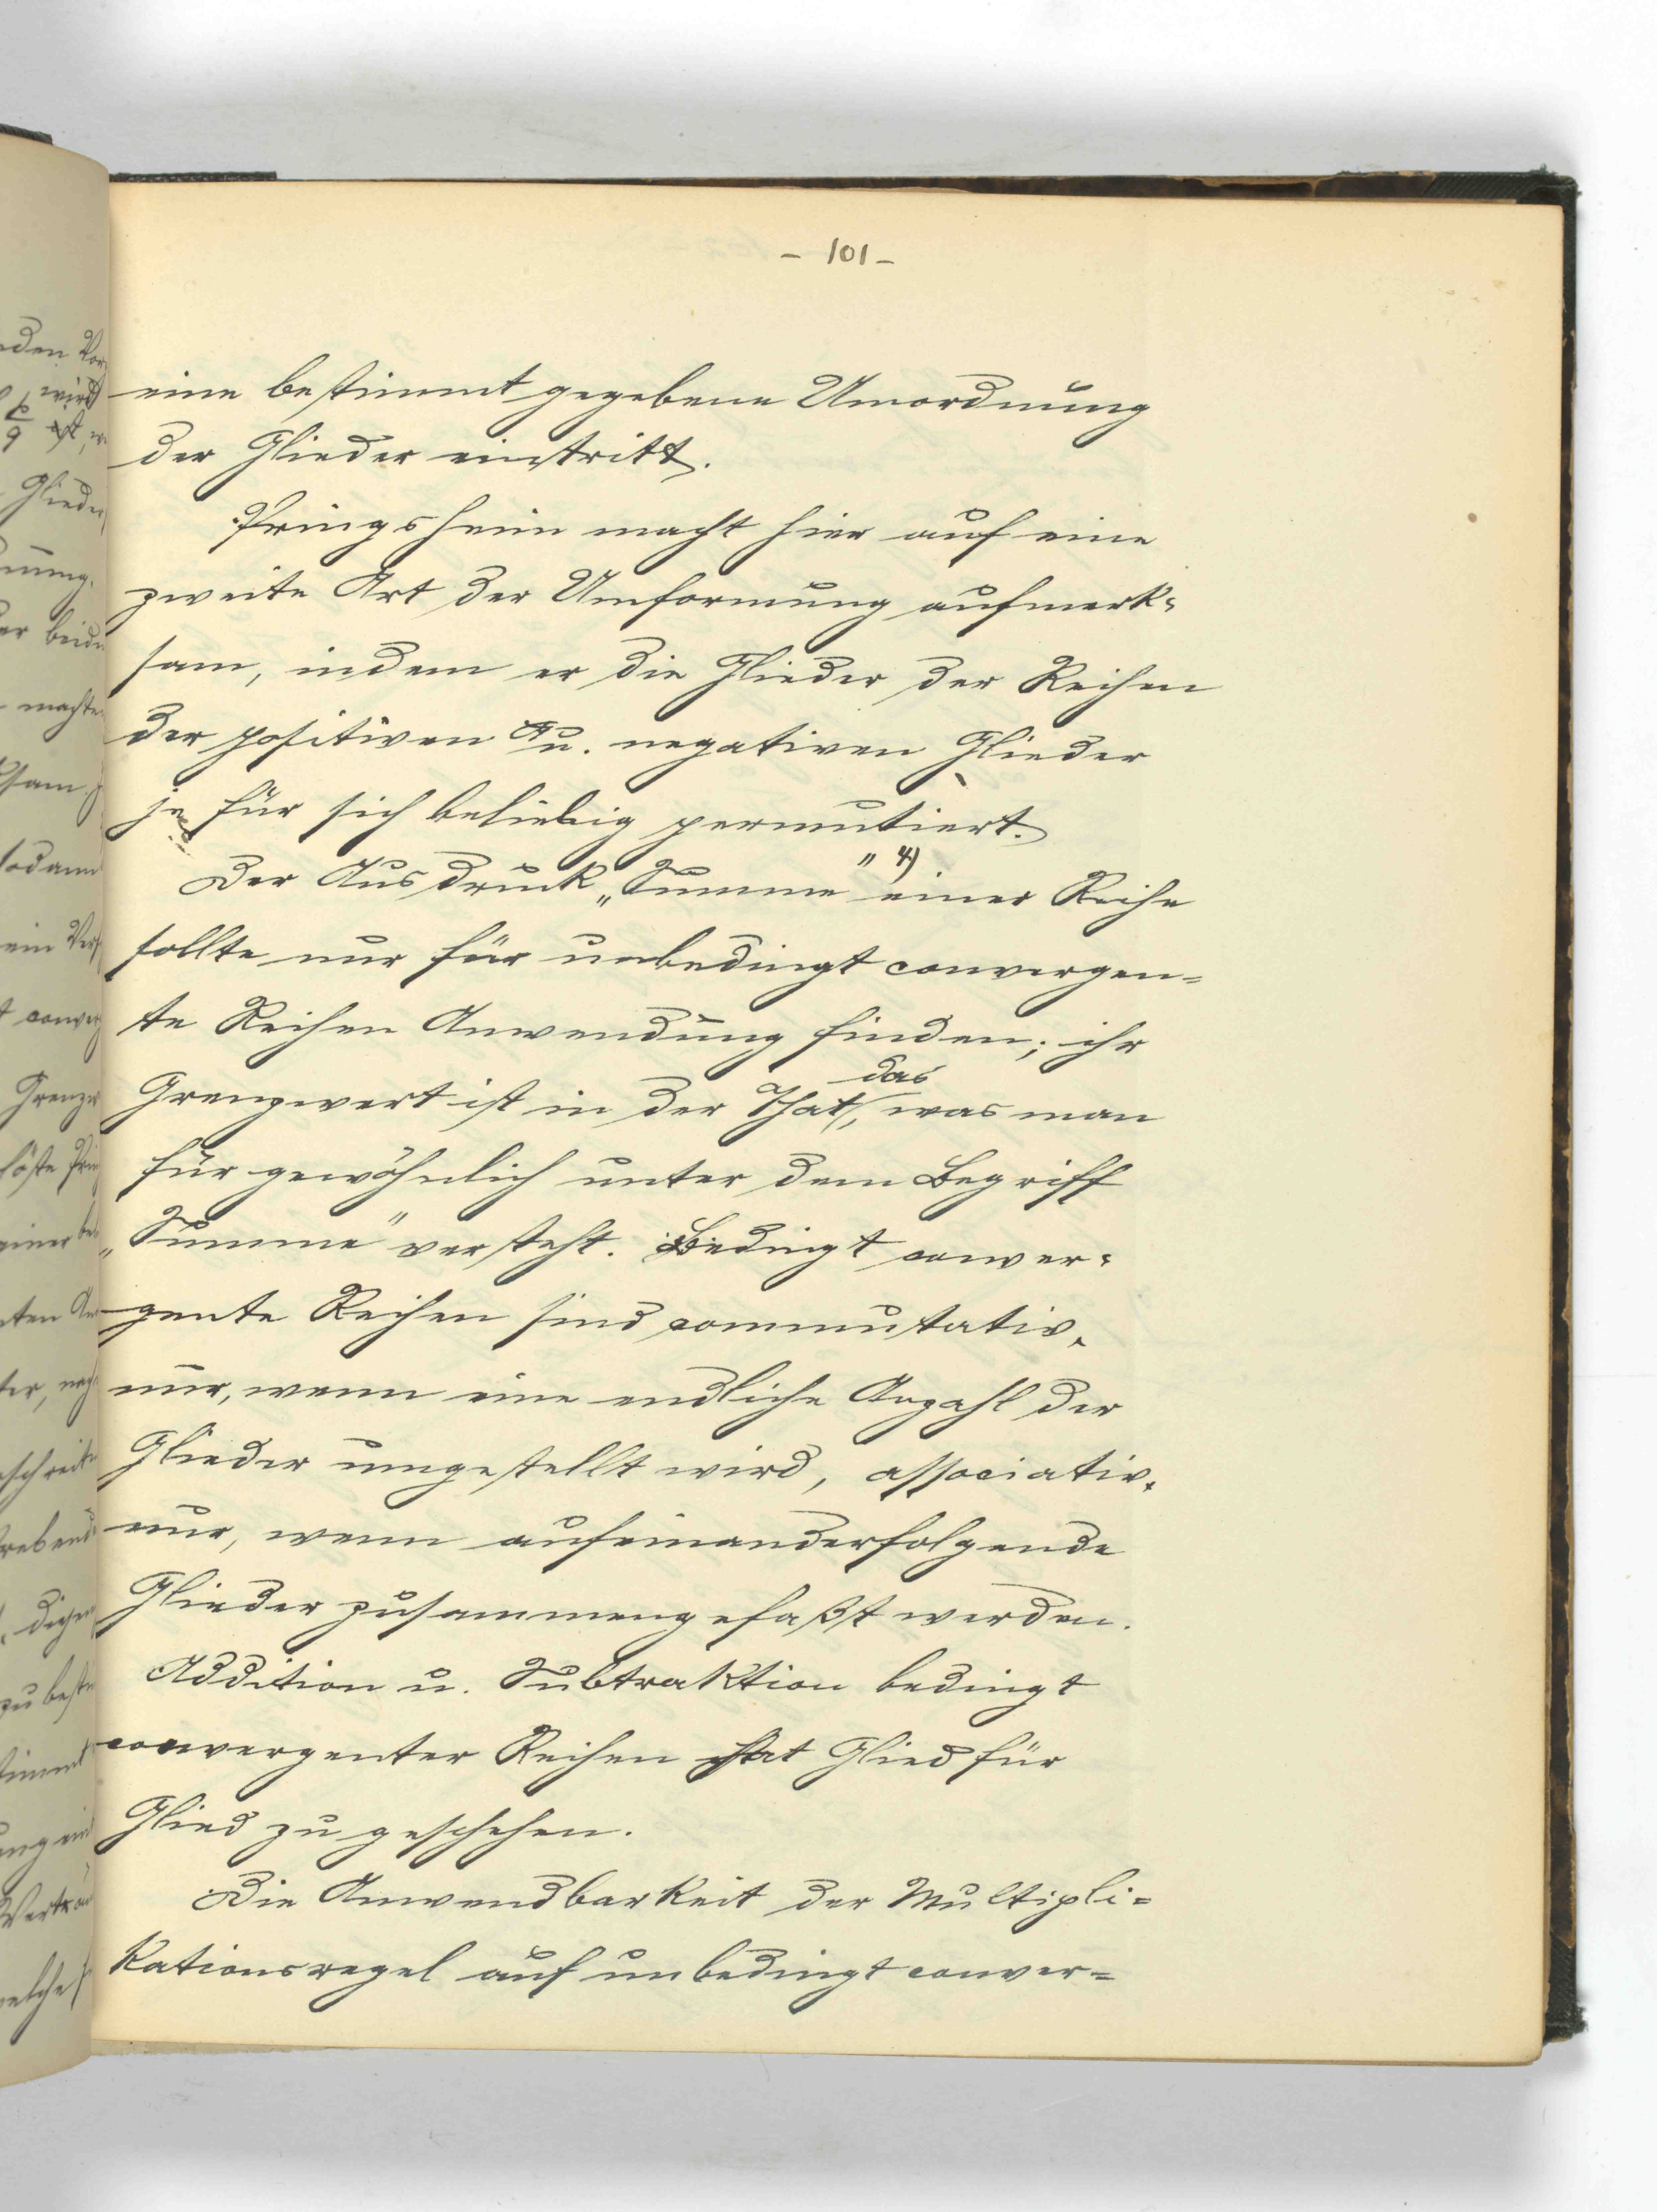 - 101 -
eine bestimmt gegebene Umordnung
der Glieder eintritt.
Pringsheim macht hier auf eine
zweite Art der Umformung aufmerk=
sam, indem er die Glieder der Reihen
der positiven u. negativen Glieder
je für sich beliebig permutiert.
Der Ausdruck „Summe" 4) einer Reihe
sollte nur für unbedingt convergen=
te Reihen Anwendung finden; ihr
das
Grenzwert ist in der That, was man
für gewöhnlich unter dem Begriff
„Summe" versteht. Bedingt conver=
gente Reihen sind commutativ,
nur, wenn eine endliche Anzahl der
Glieder umgestellt wird, associativ,
nur, wenn aufeinanderfolgende
Glieder zusammengefaßt werden.
Addition u. Subtraktion bedingt
convergenter Reihen hat Glied für
Glied zu geschehen.
Die Anwendbarkeit der Multipli=
kationsregel auf unbedingt conver=